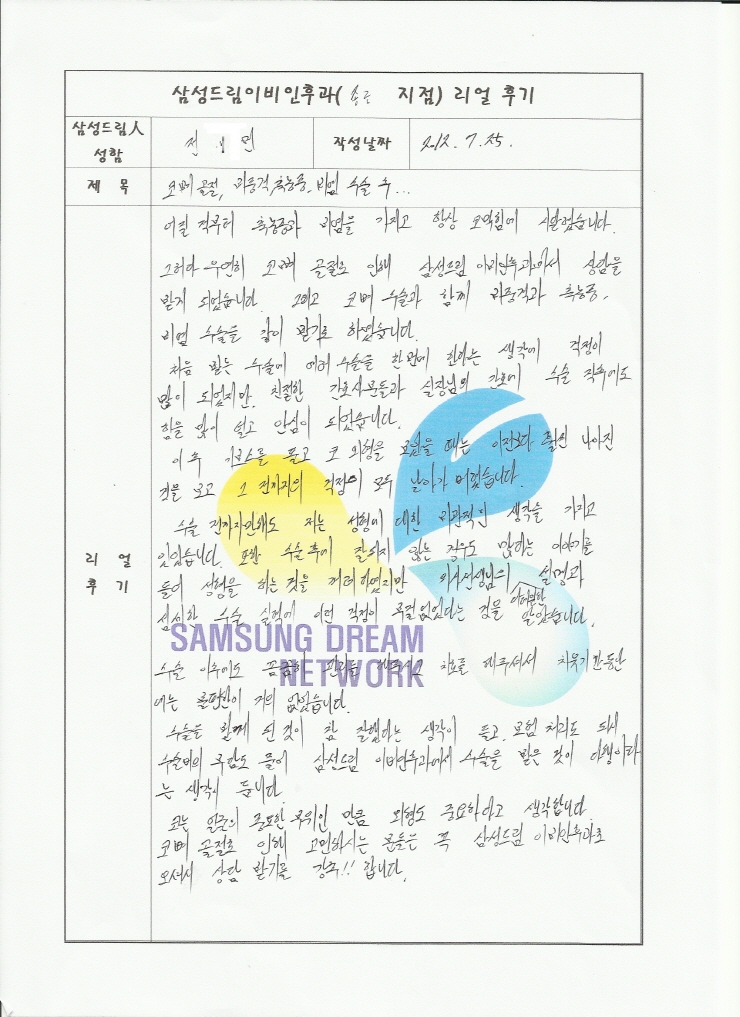 삼성드림이비인후과( 송근 지점) 리얼 후기
삼성드림人
성함
전 면
작성날짜
2012. 7. 25.
제 목
코뼈 골절, 비중격, 축농증, 비염 수술 후...
어릴 적부터 축농증과 비염을 가지고 항상 코막힘에 시달렸습니다.
그러다 우연히 코뼈 골절로 인해 삼성드림 이비인후과에서 상담을
받게 되었습니다. 그리고 코뼈 수술과 함께 비중격과 축농증,
비염 수술을 같이 받기로 하였습니다.
처음 받는 수술에 여러 수술을 한번에 한다는 생각에 걱정이
많이 되었지만, 친절한 간호사분들과 실장님의 간호에 수술 직후에도
힘을 많이 얻고 안심이 되었습니다.
이후 기브스를 풀고 코 외형을 보았을 때는 이전보다 훨씬 나아진
것을 보고 그 전까지의 걱정이 모두 날아가 버렸습니다.
수술 전까지만해도 저는 성형에 대한 비관적인 생각을 가지고
있었습니다. 또한 수술 후에 잘되지 않는 경우도 많다는 이야기를
들어 성형을 하는 것을 꺼려하였지만 의사선생님의 설명과
섬세한 수술 실력에 이런 걱정이 필요없었다는 것을 알았습니다.
SAMSUNG DREAM
NETWORK
수술 이후에도 꼼꼼하게 관리를 해주시고 치료를 해주셔서 치유기간동안
에는 불편한이 거의 없었습니다.
수술을 함께 한 것이 참 잘했다는 생각이 들고, 보험 처리도 되서
수술비의 부담도 줄어 삼성드림 이비인후과에서 수술을 받은 것이 다행이라
는 생각이 듭니다.
코는 얼굴의 중요한 부위인 만큼 외형도 중요하다고 생각합니다.
코뼈 골절로 인해 고민하시는 분들은 꼭 삼성드림 이비인후과로
오셔서 상담 받기를 강추!! 합니다.
리 얼
후 기